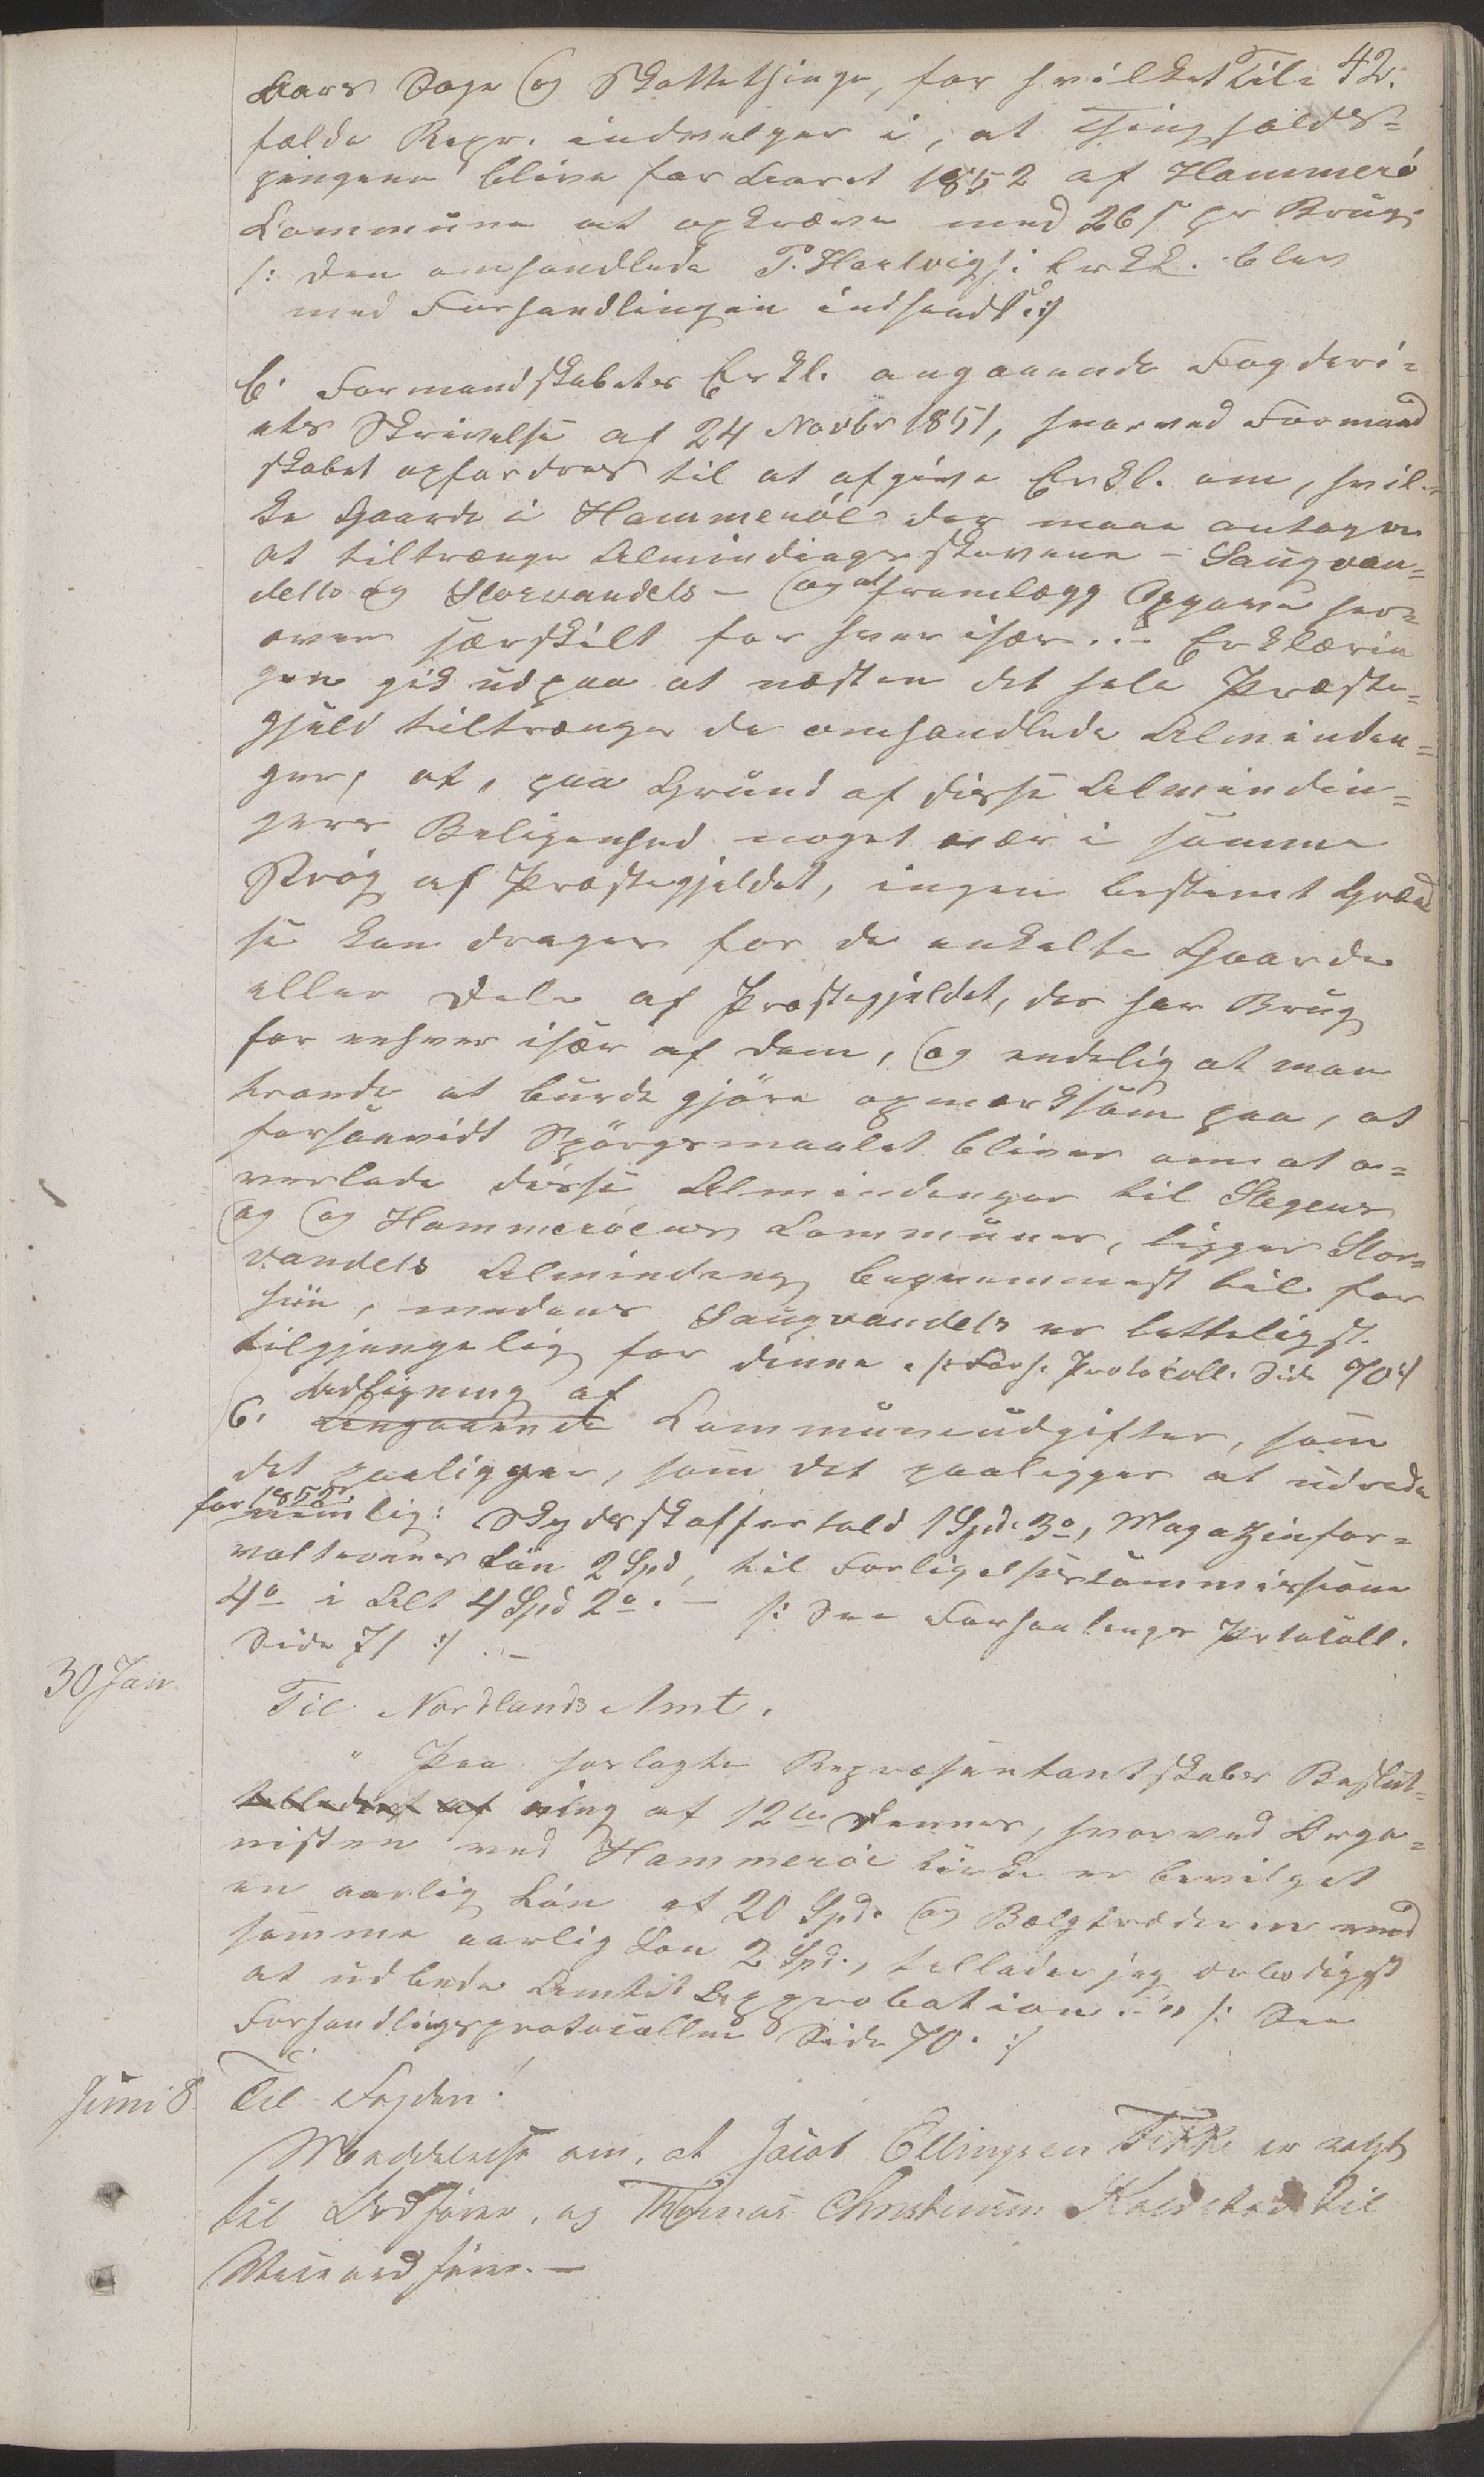 42.
Aars Sage og Skattethinge, for hvilket Til-
fælde Repr. indvelger i, at Thingholds-
pengene blive for Aaret 1852 af Hammerö
Commune at opkræve med 26 s pr Brug.
/: den omhandlede P. Hartvigs: Erkl. blev
med Forhandlingen indsendt :/
6. Formandskabets Erkl. angaaende Fogderi-
ets Skrivelse af 24 Novbr 1851, hvorved Formand
skabet opfordres til at afgive Erkl. om, hvil-
ke Gaarde i Hammeröe der maae antages
at tiltrænge Almindingsskovene – Saugvan-
dets og Storvandets – og at fremlægg Opgave her-
over særskilt for hver især.– Erklærin
gen gik ud paa at næsten det hele Præste-
gjeld tiltrænger de omhandlede Alminden-
ger, at, paa Grund af disse Almindin-
gers Beligenhed noget nær i samme
Strög af Præstegjeldet, ingen bestemt Grænd
se kan drages for de enkelte Gaarde
eller Dele af Præstegjeldet, der har Brug
for enhver især af dem, og endelig at man
troede at burde gjöre opmærksom paa, at
forsaavidt Spörgsmaalet bliver om at o-
verlade disse Almindenger til Stegens
og og Hammeröens Communer, ligger Stor-
vandets Alminding beqvemmest til for
hiin, medens Saugvandets er letteligst
tilgjengelig for denne. /: Forh. Protocoll. Side 70 :/
Udligning af
6. Angaaende Communeudgifter, som
det paaligger, som det paaligger at udrede
for 1852,
nemlig: Skydsskafferhold 1 Spd. 3 o, Magazinfor-
valterens Lön 2 Spd, til Forligelsescommissionen
4 o i Alt 4 Spd 2 o. – /: See Forhanlings Protocoll.
Side 71 :/ .–
30 Jan.
Til Nordlands Amt.
" Paa herlagte Repræsentantskabs Beslut-
ning af 12te dennes, hvorved Orga-
nisten ved Hammeröe Kirke er bevilget
en aarlig Lön af 20 Spd. og Bælgtræderen ved
samme aarlig Lön 2 Spd., tillader jeg ærbödigst
at udbede Amtets Approbation.–" /: See
Forhandlingsprotocollen Side 70. :/
Juni 8
Til Fogden!
Meddelelse om, at Jacob Ellingsen er valgt
til Ordförer, og Thomas Christensen til
Viceordförer.–